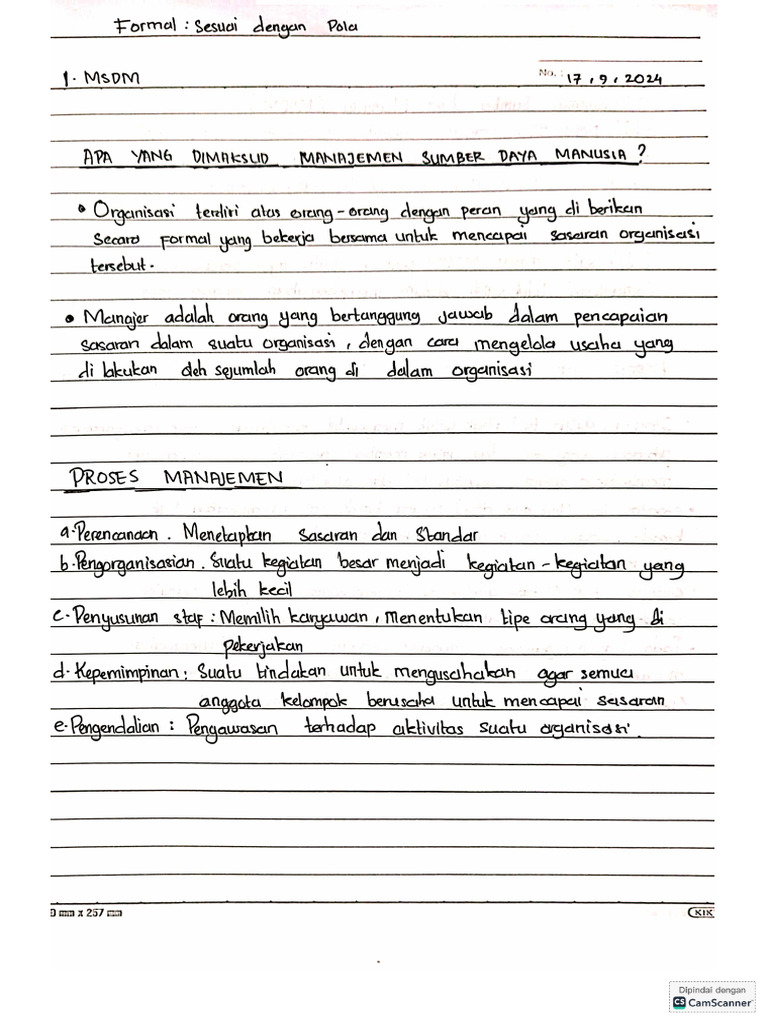 Formal : Sesuai dengan Pola
1. MSDM
No. : 17, 9, 2024
APA YANG DIMAKSUD MANAJEMEN SUMBER DAYA MANUSIA ?
• Organisasi terdiri atas orang-orang dengan peran yang di berikan
Secara formal yang bekerja bersama untuk mencapai sasaran organisasi
tersebut.
• Manajer adalah orang yang bertanggung jawab dalam pencapaian
sasaran dalam suatu organisasi, dengan cara mengelola usaha yang
di lakukan oleh sejumlah orang di dalam organisasi
PROSES MANAJEMEN
a. Perencanaan. Menetapkan sasaran dan standar
b. Pengorganisasian. Suatu kegiatan besar menjadi kegiatan-kegiatan yang
lebih kecil
c. Penyusunan staf : Memilih karyawan, menentukan tipe orang yang di
pekerjakan
d. Kepemimpinan; Suatu tindakan untuk mengusahakan agar semua
anggota kelompok berusaha untuk mencapai sasaran
e. Pengendalian : Pengawasan terhadap aktivitas suatu organisasi.
mm x 257 mm
KIK
Dipindai dengan
CS CamScanner